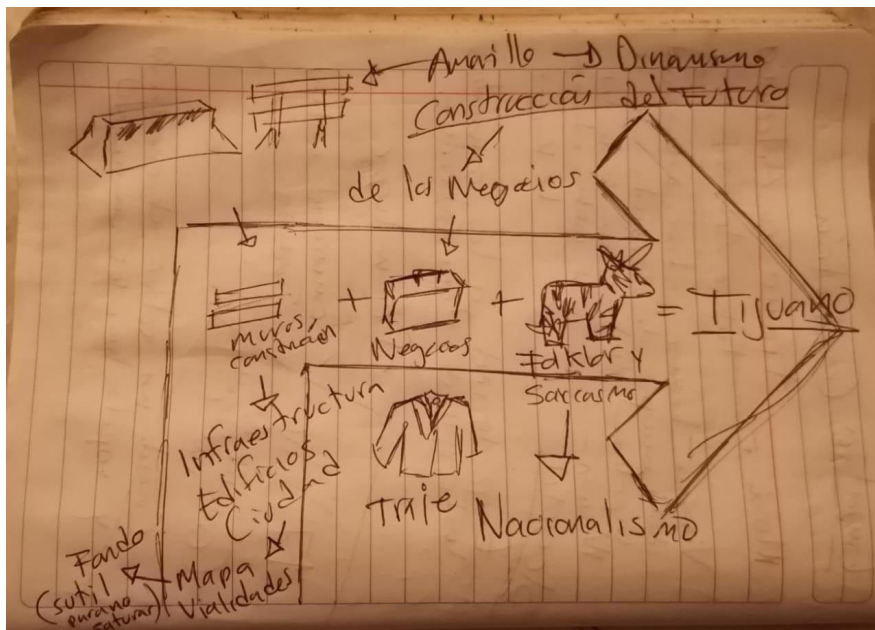 Amarillo → Dinamismo
Construcción del Futuro
de los Negocios
+ + = Tijuano
muros,
construcción
Negocios
Folklor y
Sarcasmo
Infraestructura
Edificios
Ciudad
Traje
Nacionalismo
Fondo
(sutil
para no
saturar)
Mapa
Vialidades